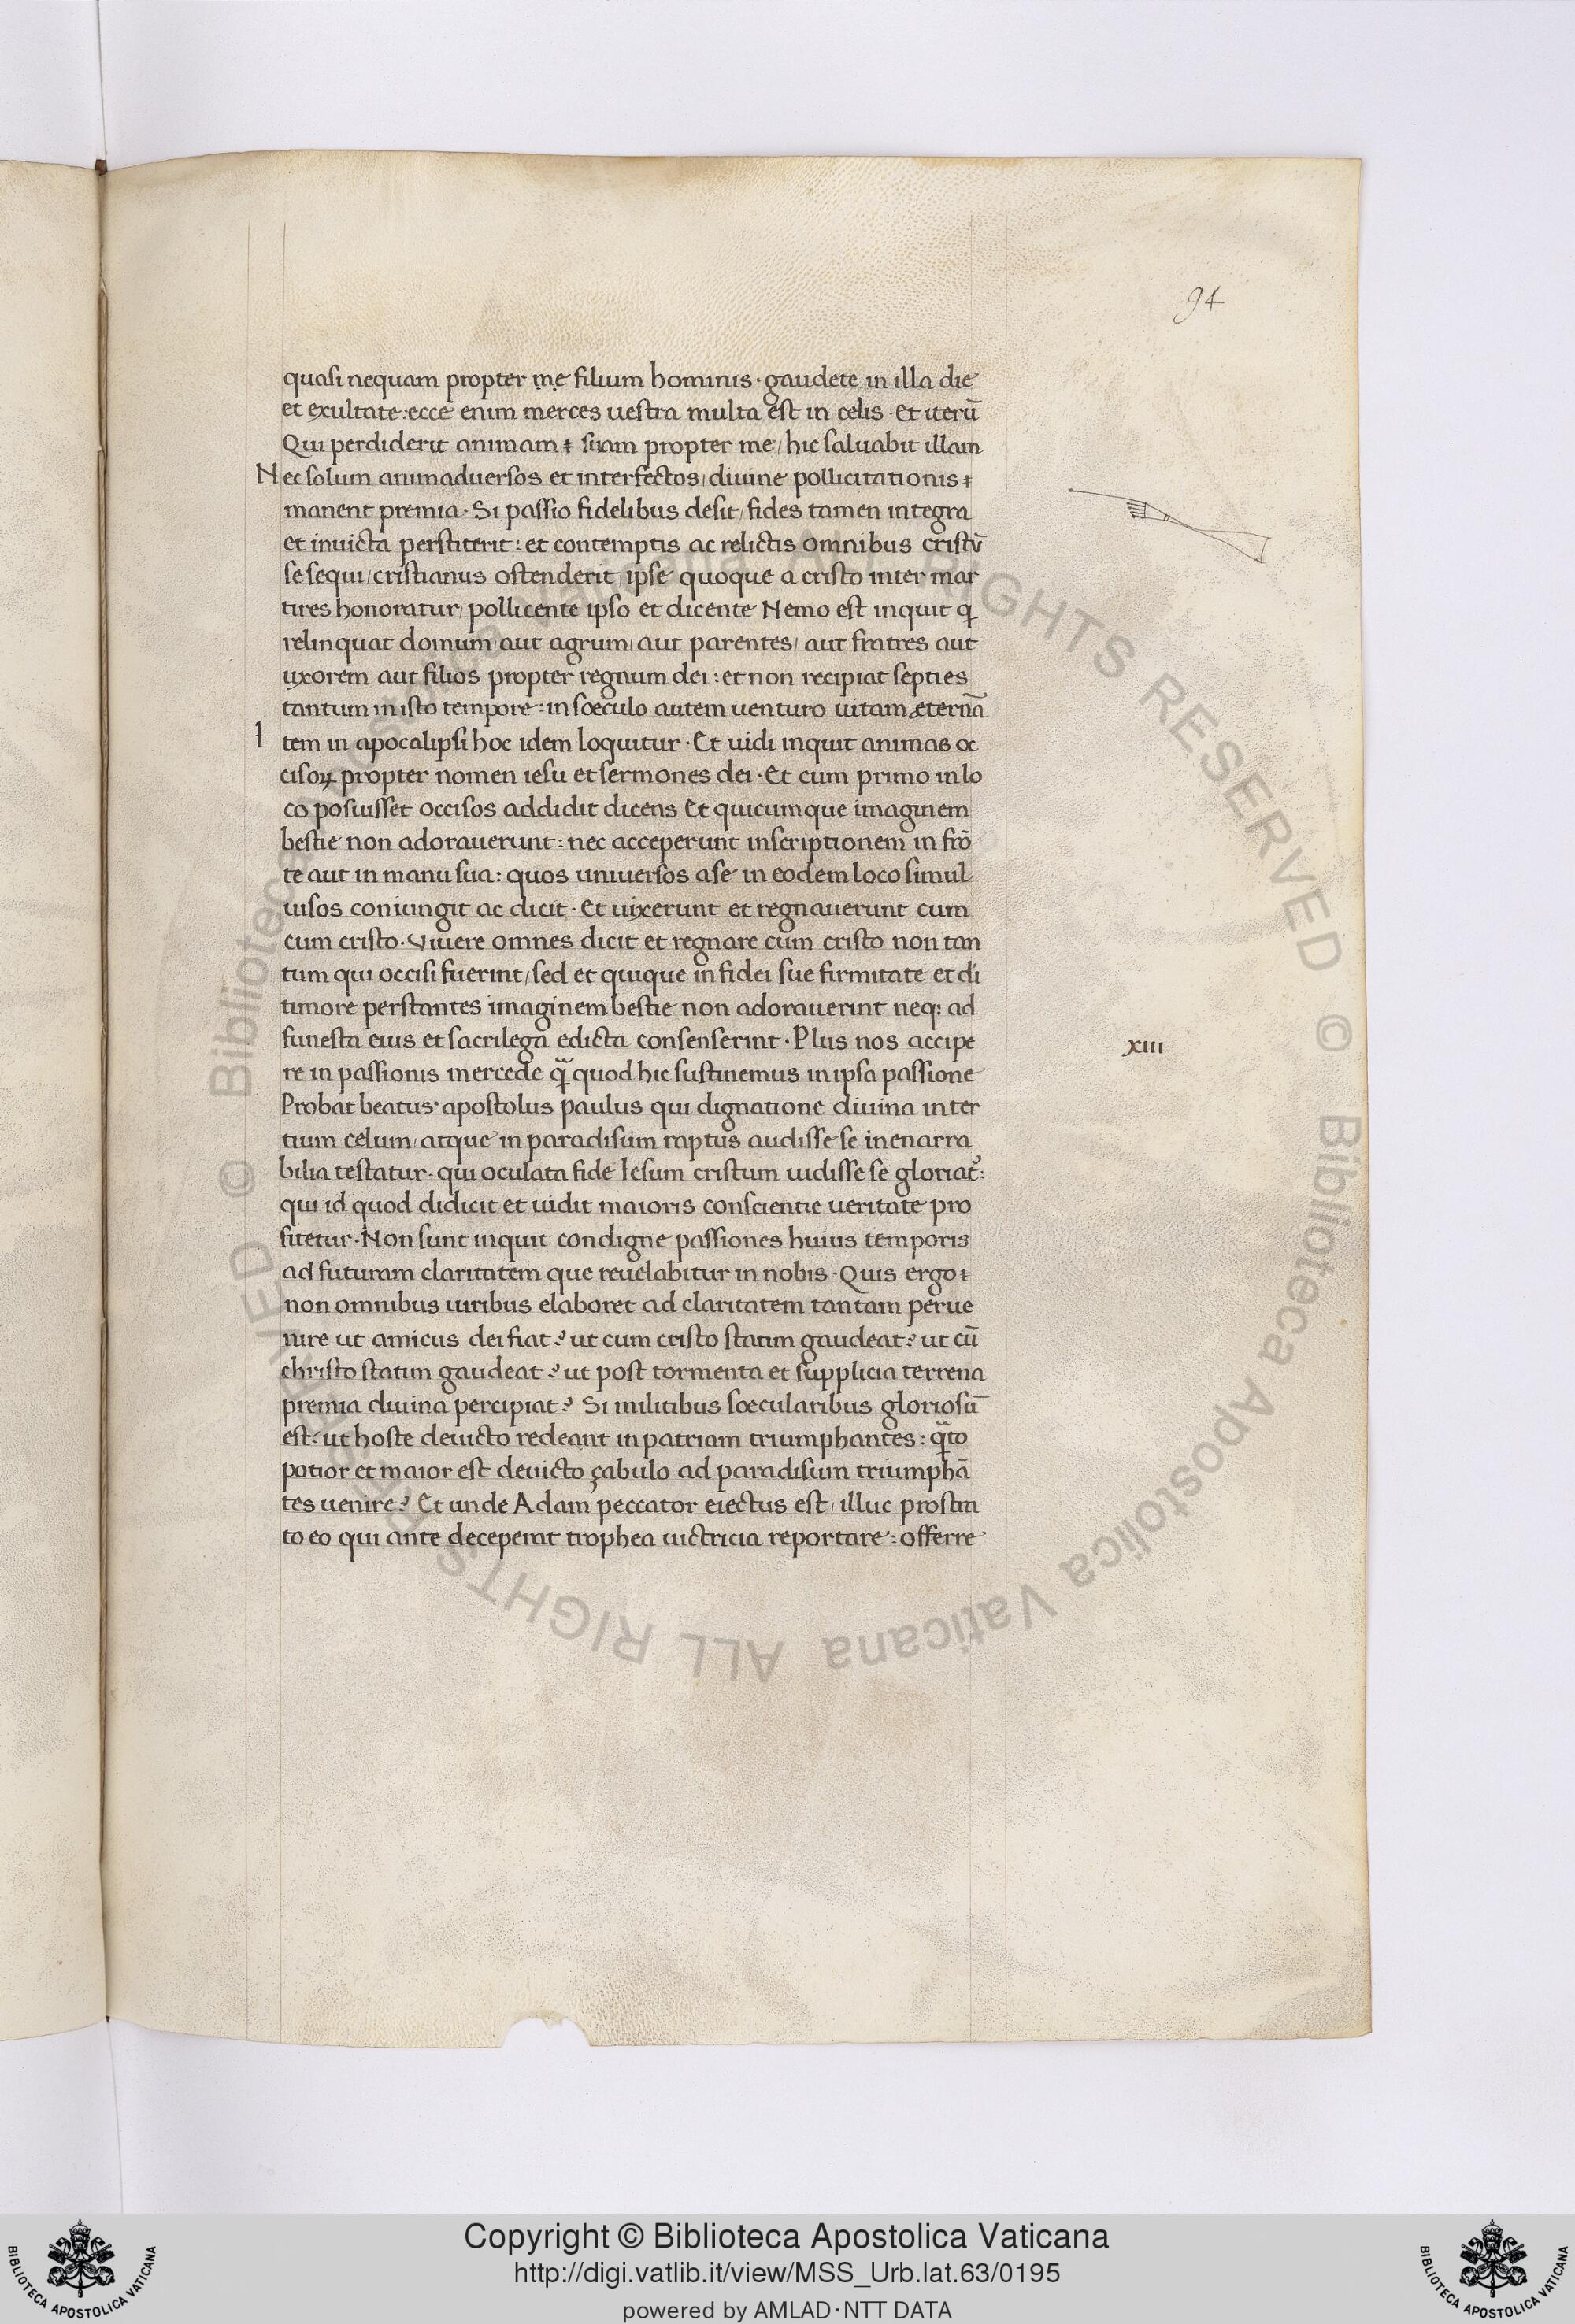 94
quasi nequam propter me filium hominis · gaudete in illa die
et exultate : ecce enim merces uestra multa est in celis · Et iterū
Qui perdiderit animam suam propter me / hic saluabit illam
Nec solum animaduersos et interfectos / diuine pollicitationis
manent premia · Si passio fidelibus desit / fides tamen integra
et inuicta perstiterit : et contemptis ac relictis omnibus cristū
se sequi / cristianus ostenderit / ipse quoque a cristo inter mar
tires honoratur / pollicente ipso et dicente Nemo est inquit qi
relinquat domum / aut agrum / aut parentes / aut fratres aut
uxorem aut filios propter regnum dei : et non recipiat septies
tantum in isto tempore : in sœculo autem uenturo uitam æternā
Item in apocalipsi hoc idem loquitur · Et uidi inquit animas oc
cisoꝝ propter nomen iesu et sermones dei · Et cum primo in lo
co posuisset occisos addidit dicens Et quicumque imaginem
bestie non adorauerunt : nec acceperunt inscriptionem in frō
te aut in manu sua : quos uniuersos a se in eodem loco simul
uisos coniungit ac dicit · Et uixerunt et regnauerunt cum
cum cristo · Viuere omnes dicit et regnare cum cristo non tan
tum qui occisi fuerint / sed et quique in fidei sue firmitate et di
timore perstantes imaginem bestie non adorauerint neq: ad
funesta eius et sacrilega edicta consenserint · Plus nos accipe
xiii
re in passionis mercede qᷓ quod hic sustinemus in ipsa passione
Probat beatus apostolus paulus qui dignatione diuina in ter
tium celum / atque in paradisum raptus audisse se inenarra
bilia testatur · qui oculata fide Iesum cristum uidisse se gloriat᷑ :
qui id quod didicit et uidit maioris conscientie ueritate pro
fitetur · Non sunt inquit condigne passiones huius temporis
ad futuram claritatem que reuelabitur in nobis · Quis ergo
non omnibus uiribus elaboret ad claritatem tantam perue
nire ut amicus dei fiat ? ut cum cristo statim gaudeat ? ut cū
christo statim gaudeat ? ut post tormenta et supplicia terrena
premia diuina percipiat ? Si militibus sœcularibus gloriosū
est : ut hoste deuicto redeant in patriam triumphantes : qᷓto
potior et maior est deuicto çabulo ad paradisum triumphā
tes uenire ? Et unde Adam peccator eiectus est / illuc prostra
to eo qui ante deceperat trophea uictricia reportare : offerre
© Biblioteca Apostolica Vaticana ALL RIGHTS RESERVED © Biblioteca Apostolica Vaticana ALL RIGHTS RESERVED
Copyright © Biblioteca Apostolica Vaticana
http://digi.vatlib.it/view/MSS_Urb.lat.63/0195
powered by AMLAD·NTT DATA
BIBLIOTECA APOSTOLICA VATICANA
BIBLIOTECA APOSTOLICA VATICANA